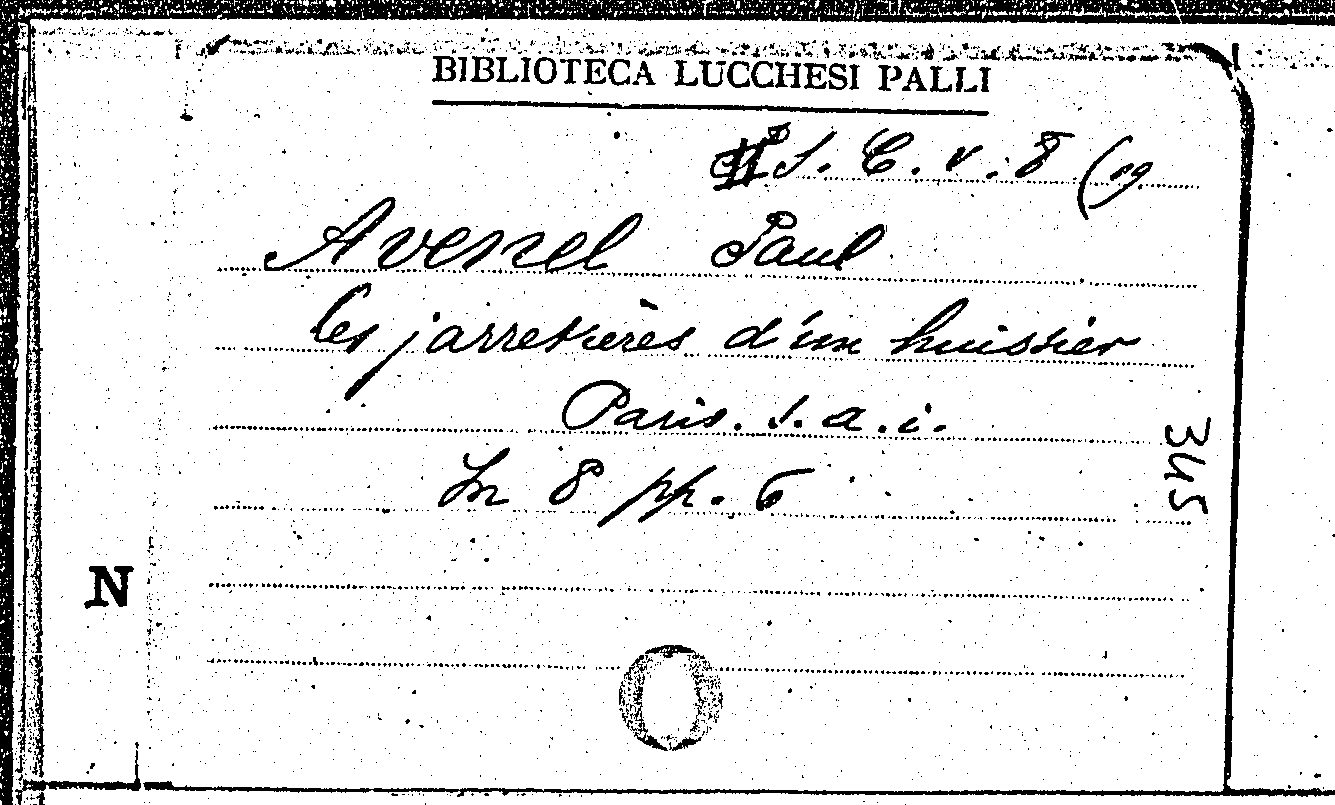 BIBLIOTECA LUCCHESI PALLI
S. C. v. 8 (19
Avenel Paul
Les jarretières d'un huissier
Paris. s. a. i.
In 8 pp. 6
345
N